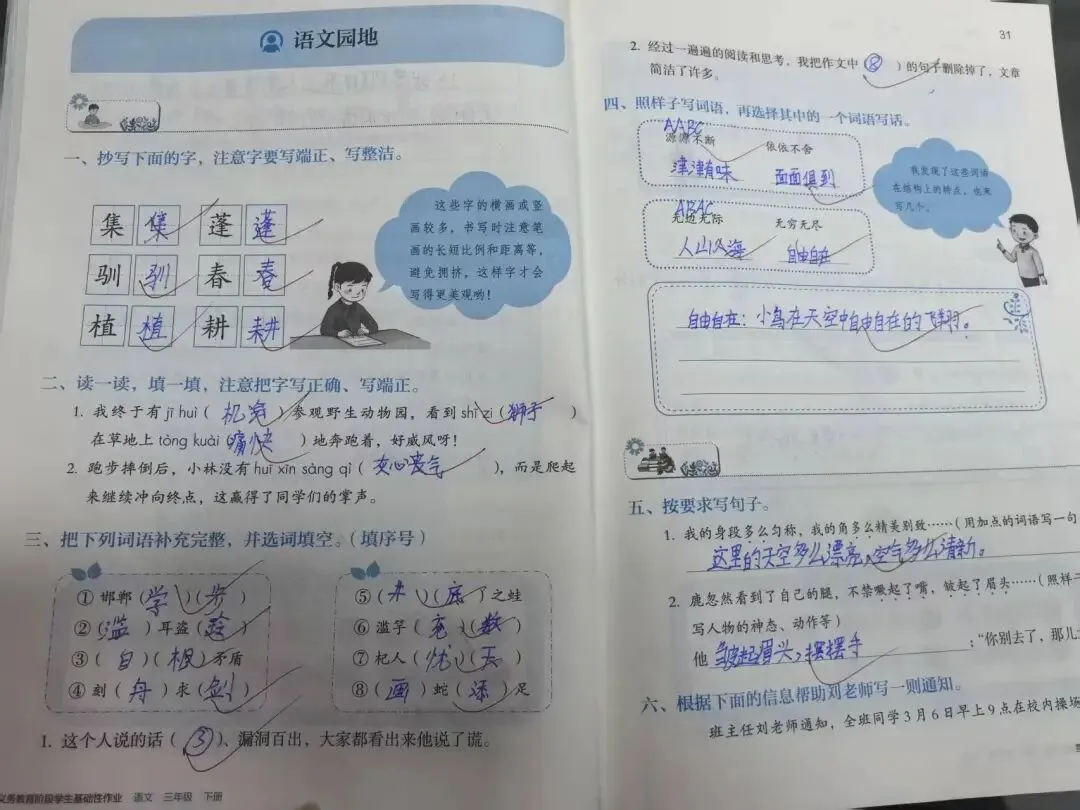 语文园地
一、抄写下面的字，注意字要写端正、写整洁。
集 集 蓬 蓬
驯 驯 春 春
植 植 耕 耕
这些字的横画或竖
画较多，书写时注意笔
画的长短比例和距离等，
避免拥挤，这样字才会
写得更美观哟！
二、读一读，填一填，注意把字写正确、写端正。
1. 我终于有 jī huì（机会）参观野生动物园，看到 shī zi（狮子）
在草地上 tòng kuài（痛快）地奔跑着，好威风呀！
2. 跑步摔倒后，小林没有 huī xīn sàng qì（灰心丧气），而是爬起
来继续冲向终点，这赢得了同学们的掌声。
三、把下列词语补充完整，并选词填空。（填序号）
① 邯郸（学）（步）
②（ ）耳盗（ ）
③（自）（ ）矛盾
④ 刻（舟）求（剑）
⑤（ ）（底）之蛙
⑥ 滥竽（充）（数）
⑦ 杞人（忧）（天）
⑧（画）蛇（添）足
1. 这个人说的话（③）、漏洞百出，大家都看出来他说了谎。
义务教育阶段学生基础性作业 语文 三年级 下册
31
2. 经过一遍遍的阅读和思考，我把作文中（⑧）的句子删除掉了，文章
简洁了许多。
四、照样子写词语，再选择其中的一个词语写话。
AABC
源源不断 依依不舍
津津有味 面面俱到
ABAC
无边无际 无穷无尽
人山人海 自由自在
我发现了这些词语
在结构上的特点，也来
写几个。
自由自在：小鸟在天空中自由自在的飞翔。
五、按要求写句子。
1. 我的身段多么匀称，我的角多么精美别致……（用加点的词语写一句
这里的天空多么漂亮，空气多么清新。
2. 鹿忽然看到了自己的腿，不禁噘起了嘴，皱起了眉头……（照样子
写人物的神态、动作等）
他 皱起眉头，摆摆手 ：“你别去了，那儿
六、根据下面的信息帮助刘老师写一则通知。
班主任刘老师通知，全班同学3月6日早上9点在校内操场